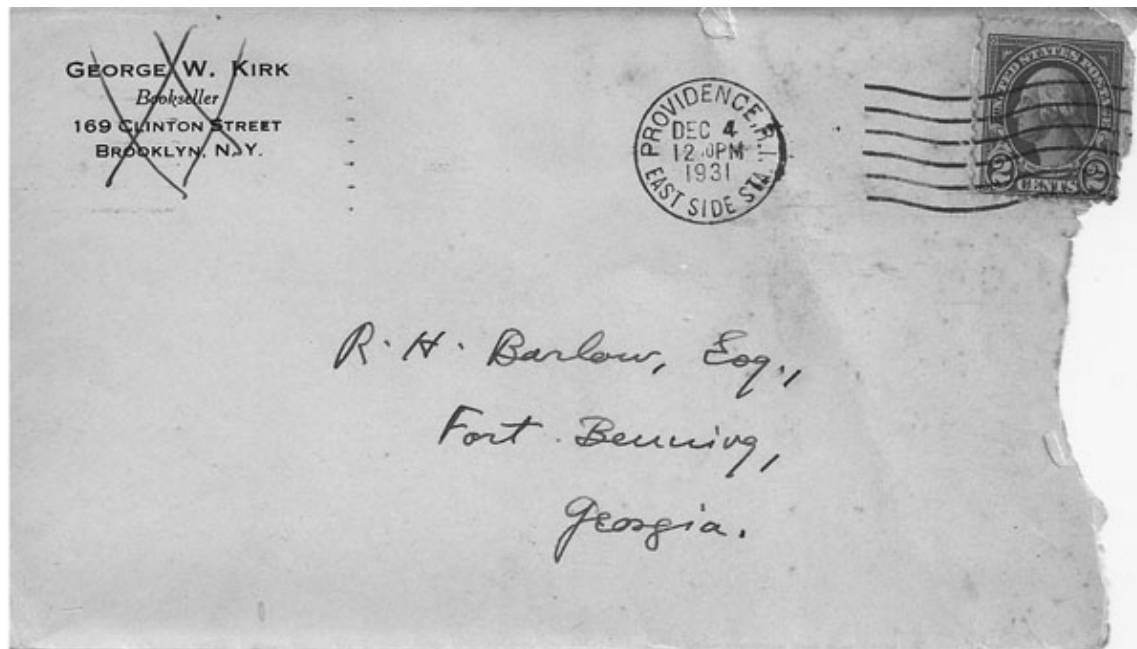 GEORGE W. KIRK
Bookseller
169 CLINTON STREET
BROOKLYN, N.Y.
PROVIDENCE, R.I.
DEC 4
1931
EAST SIDE STA.
UNITED STATES POSTAGE
2 CENTS 2
R. H. Barlow, Esq.,
Fort Benning,
Georgia.